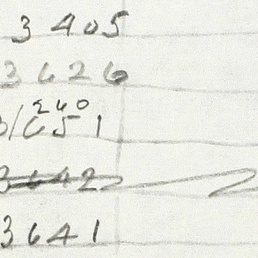 3405
3626
240
3/651
3642
3641